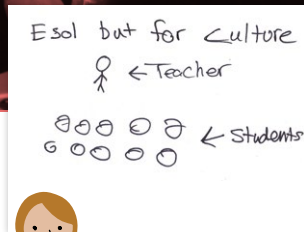 Esol but for culture
← Teacher
← Students